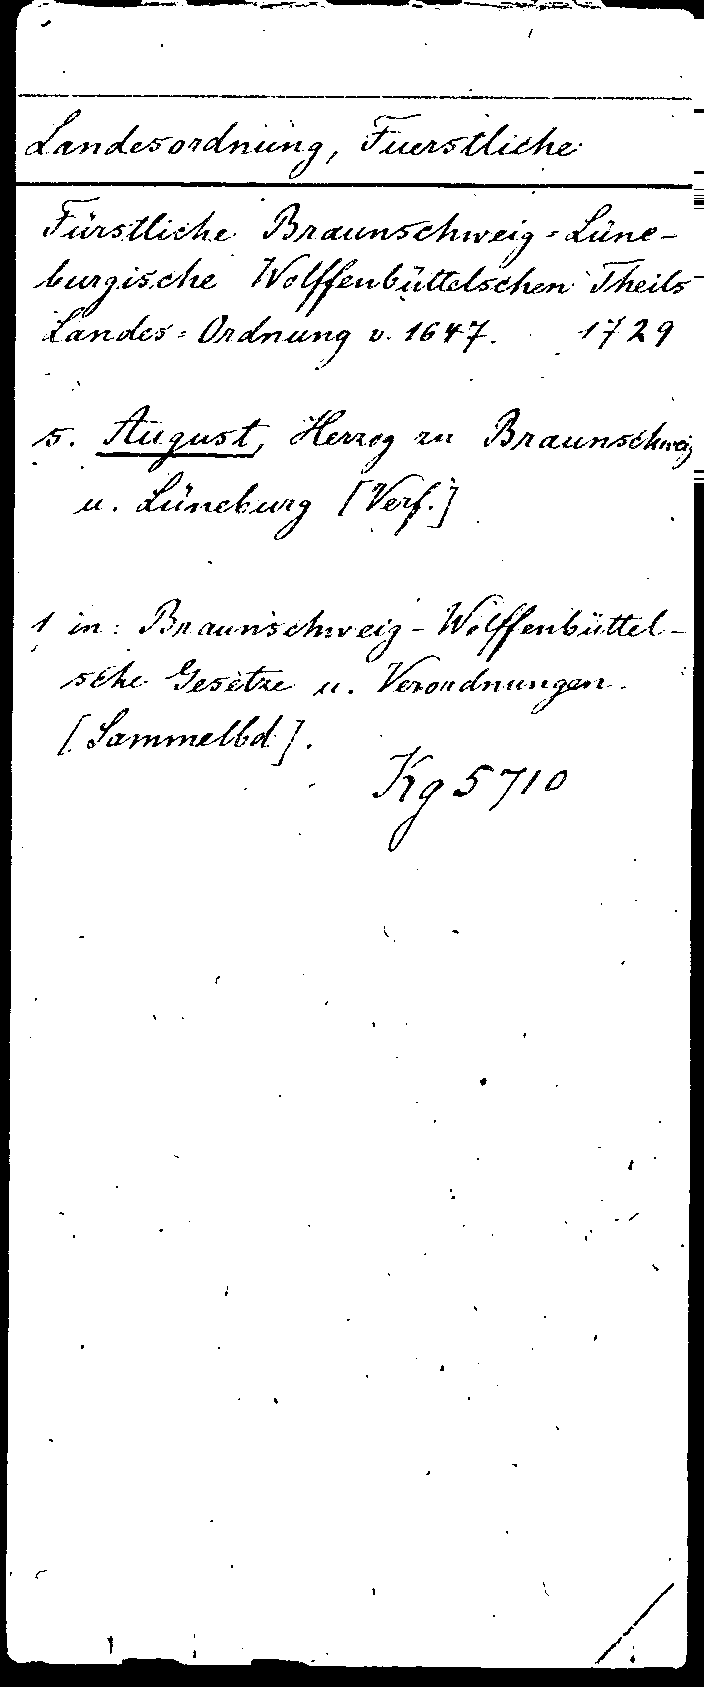 Landesordnung, Fuerstliche
Fürstliche Braunschweig=Lüne-
burgische Wolffenbüttelschen Theils
Landes=Ordnung v. 1647. 1729
s. August, Herzog zu Braunschweig
u. Lüneburg [Verf.]
1 in: Braunschweig-Wolffenbüttel-
sche Gesetze u. Verordnungen.
[Sammelbd].
Kg 5710